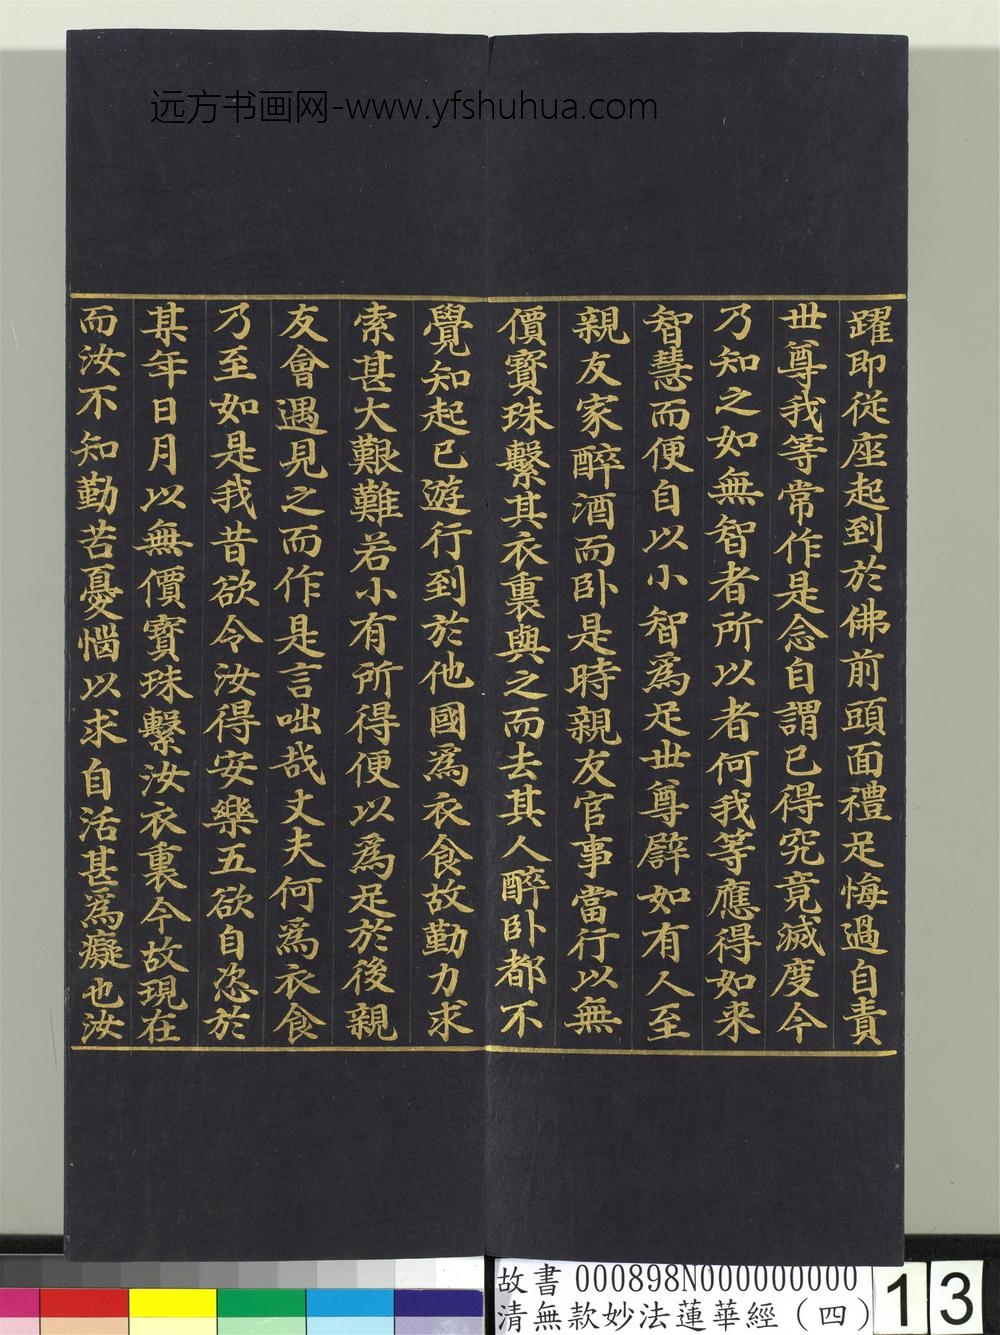 远方书画网-www.yfshuhua.com
躍即從座起到於佛前頭面禮足悔過自責
世尊我等常作是念自謂已得究竟滅度今
乃知之如無智者所以者何我等應得如来
智慧而便自以小智為足世尊譬如有人至
親友家醉酒而卧是時親友官事當行以無
價寶珠繫其衣裏與之而去其人醉卧都不
覺知起已遊行到於他國為衣食故勤力求
索甚大艱難若小有所得便以為足於後親
友會遇見之而作是言咄哉丈夫何為衣食
乃至如是我昔欲令汝得安樂五欲自恣於
某年日月以無價寶珠繫汝衣裏今故現在
而汝不知勤苦憂惱以求自活甚為癡也汝
故書 000898N000000000
清無款妙法蓮華經（四）
13